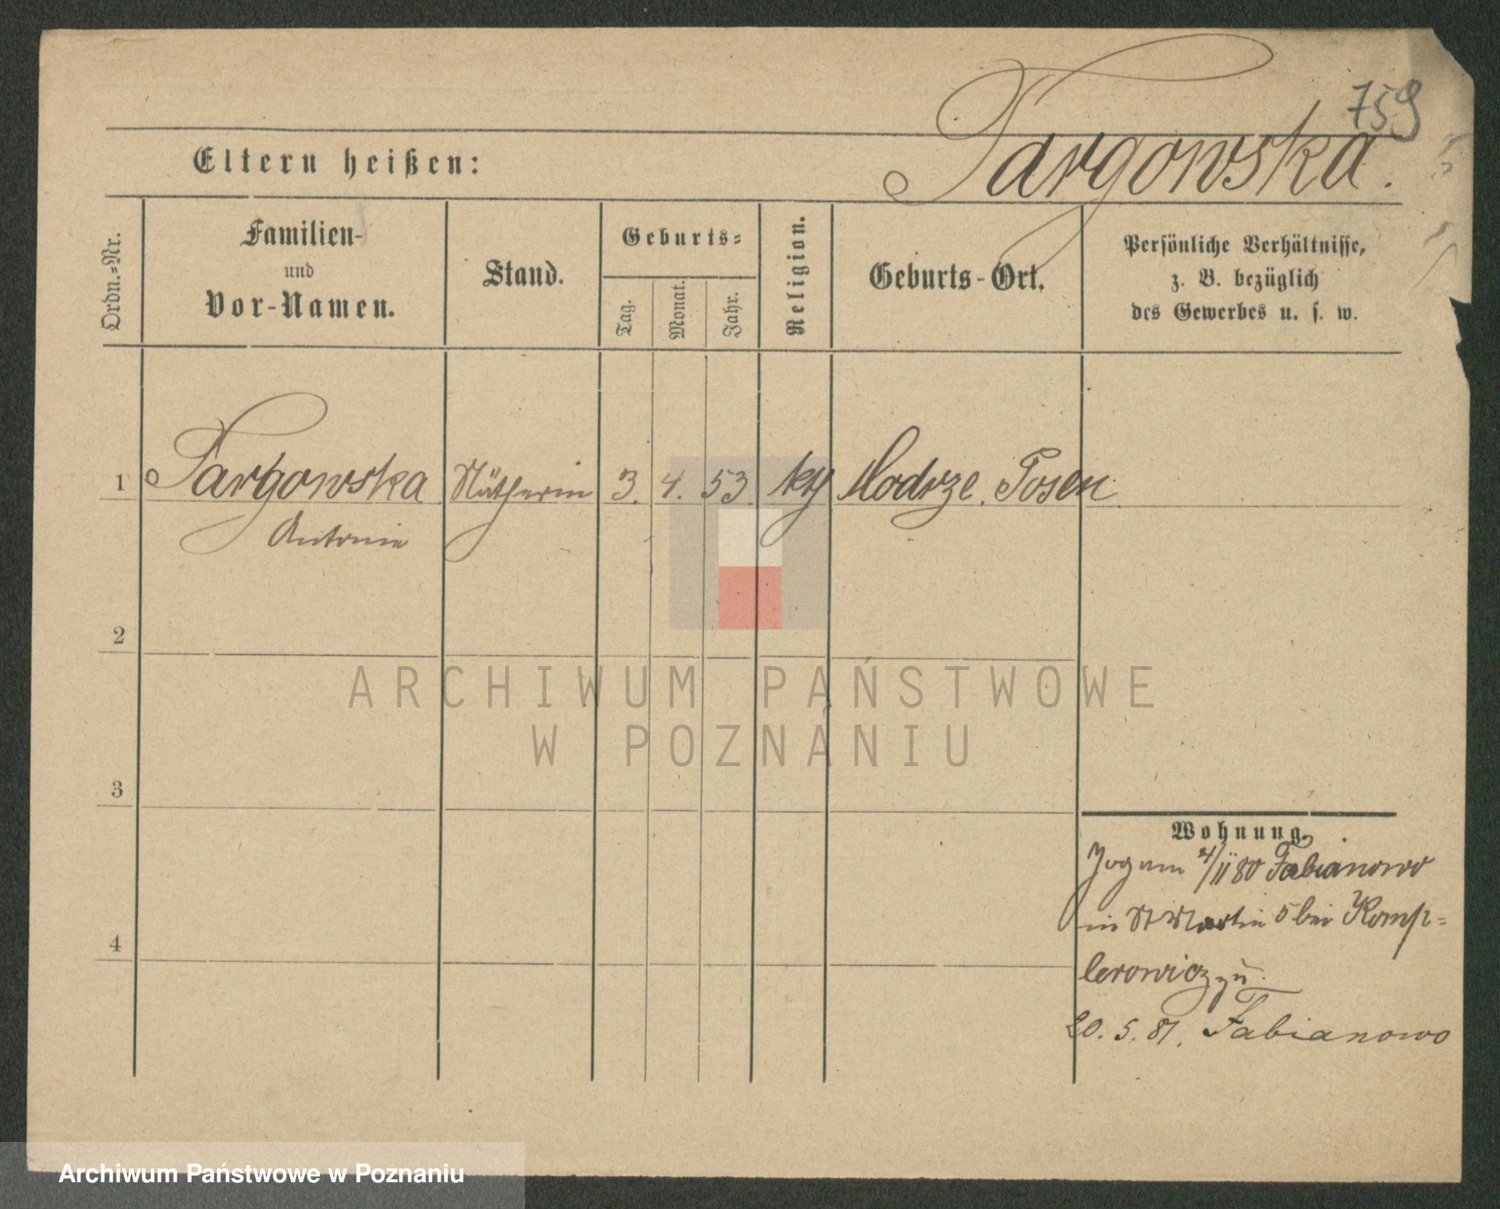 759
Targowska.
Eltern heißen:
Ordn.-Nr.
Familien-
und
Vor-Namen.
Stand.
Geburts-
Tag.
Monat.
Jahr.
Religion.
Geburts-Ort.
Persönliche Verhältnisse,
z. B. bezüglich
des Gewerbes u. s. w.
1 Targowska Nätherin 3. 4. 53. Modrze. Posen
Antonie
2
ARCHIWUM PAŃSTWOWE
W POZNANIU
3
Wohnung.
Zog am 4/11 80 Fabianowo
in St Martin 5 bei
zu.
20. 5. 81. Fabianowo
4
Archiwum Państwowe w Poznaniu